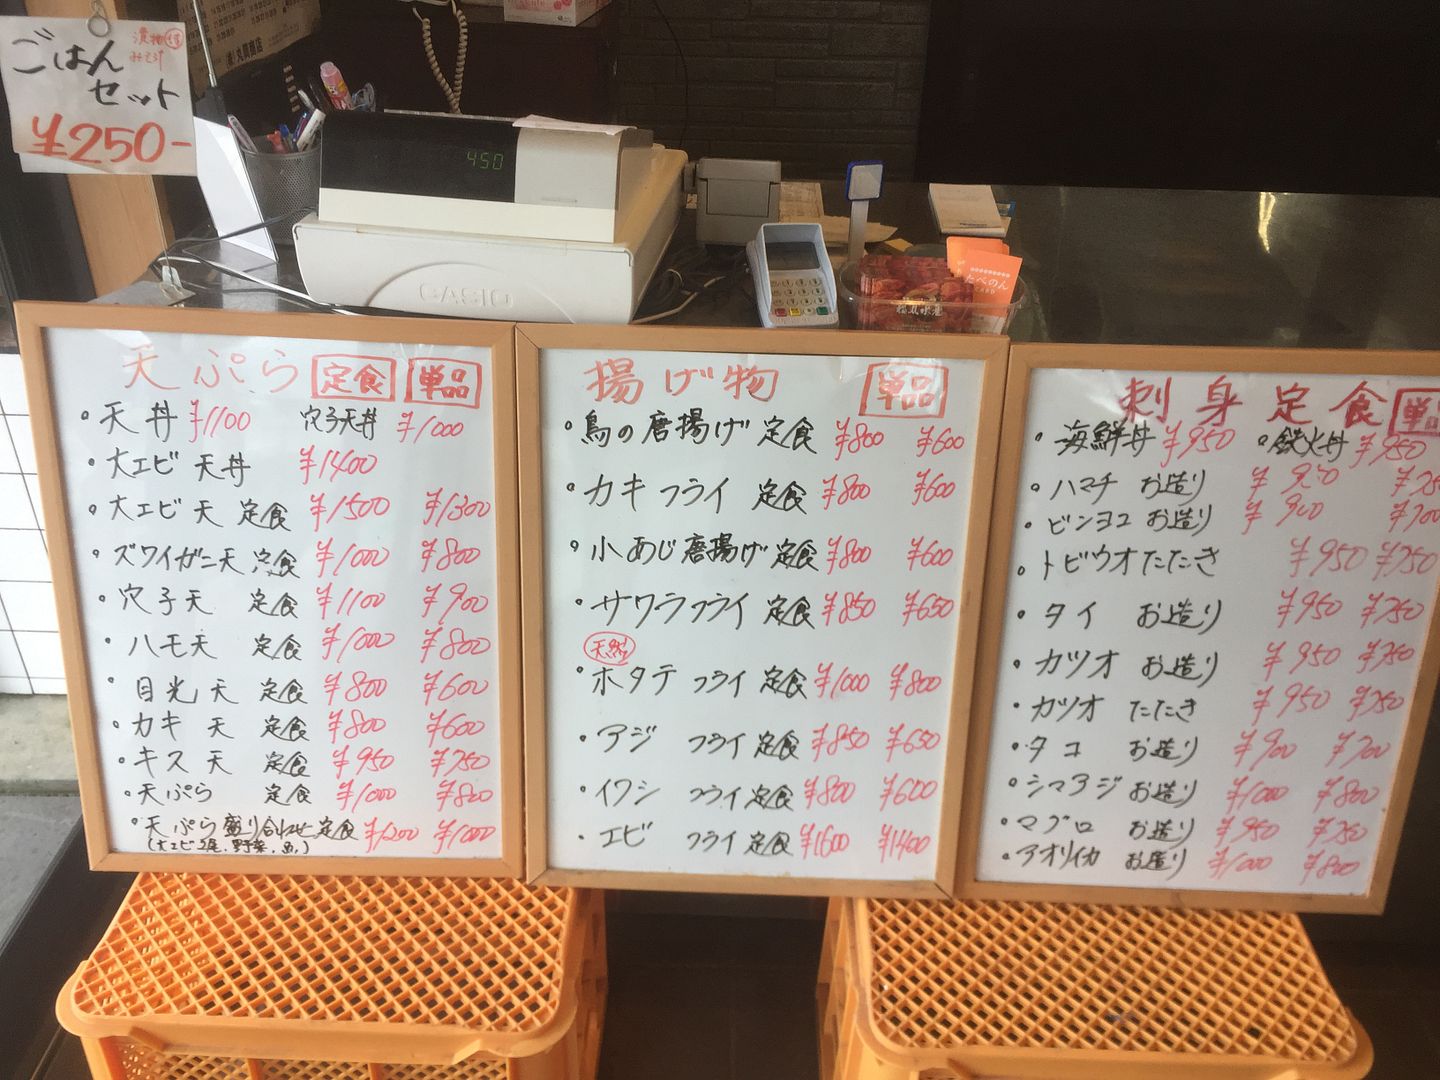 ごはん
セット
¥250-
漬物
みそ汁
450
CASIO
たべのん
天ぷら 定食 単品
・天丼 ¥1100 穴子天丼 ¥1000
・大エビ 天丼 ¥1400
・大エビ 天 定食 ¥1500 ¥1300
・ズワイガニ天 定食 ¥1000 ¥800
・穴子天 定食 ¥1100 ¥900
・ハモ天 定食 ¥1000 ¥800
・目光 天 定食 ¥800 ¥600
・カキ 天 定食 ¥800 ¥600
・キス 天 定食 ¥950 ¥750
・天ぷら 定食 ¥1000 ¥800
・天ぷら盛り合わせ定食 ¥1200 ¥1000
(大エビ2尾、野菜、魚、)
揚げ物 単品
・鳥の唐揚げ 定食 ¥800 ¥600
・カキ フライ 定食 ¥800 ¥600
・小あじ唐揚げ 定食 ¥800 ¥600
・サワラフライ 定食 ¥850 ¥650
天然
・ホタテ フライ 定食 ¥1000 ¥800
・アジ フライ 定食 ¥850 ¥650
・イワシ フライ 定食 ¥800 ¥600
・エビ フライ 定食 ¥1600 ¥1400
刺身定食 単品
・海鮮丼 ¥950 ・鉄火丼 ¥950
・ハマチ お造り ¥950
・ビンヨコ お造り ¥900 ¥700
・トビウオ たたき ¥950 ¥750
・タイ お造り ¥950 ¥750
・カツオ お造り ¥950 ¥750
・カツオ たたき ¥950 ¥750
・タコ お造り ¥900 ¥700
・シマアジ お造り ¥1000 ¥800
・マグロ お造り ¥950 ¥750
・アオリイカ お造り ¥1000 ¥800